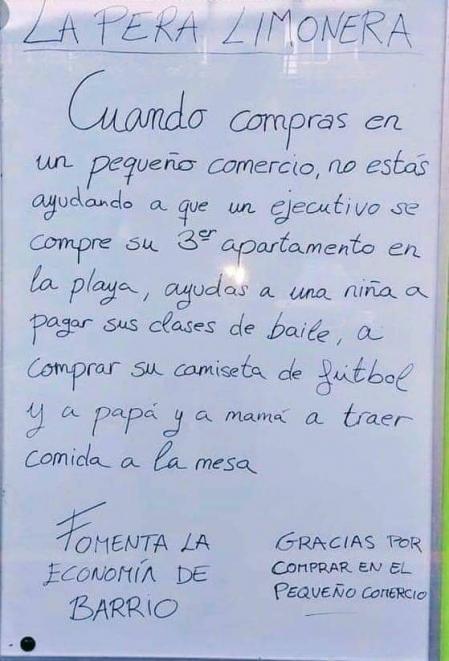 LA PERA LIMONERA
Cuando compras en
un pequeño comercio, no estás
ayudando a que un ejecutivo se
compre su 3er apartamento en
la playa, ayudas a una niña a
pagar sus clases de baile, a
comprar su camiseta de fútbol
y a papá y a mamá a traer
comida a la mesa
FOMENTA LA
ECONOMÍA DE
BARRIO
GRACIAS POR
COMPRAR EN EL
PEQUEÑO COMERCIO